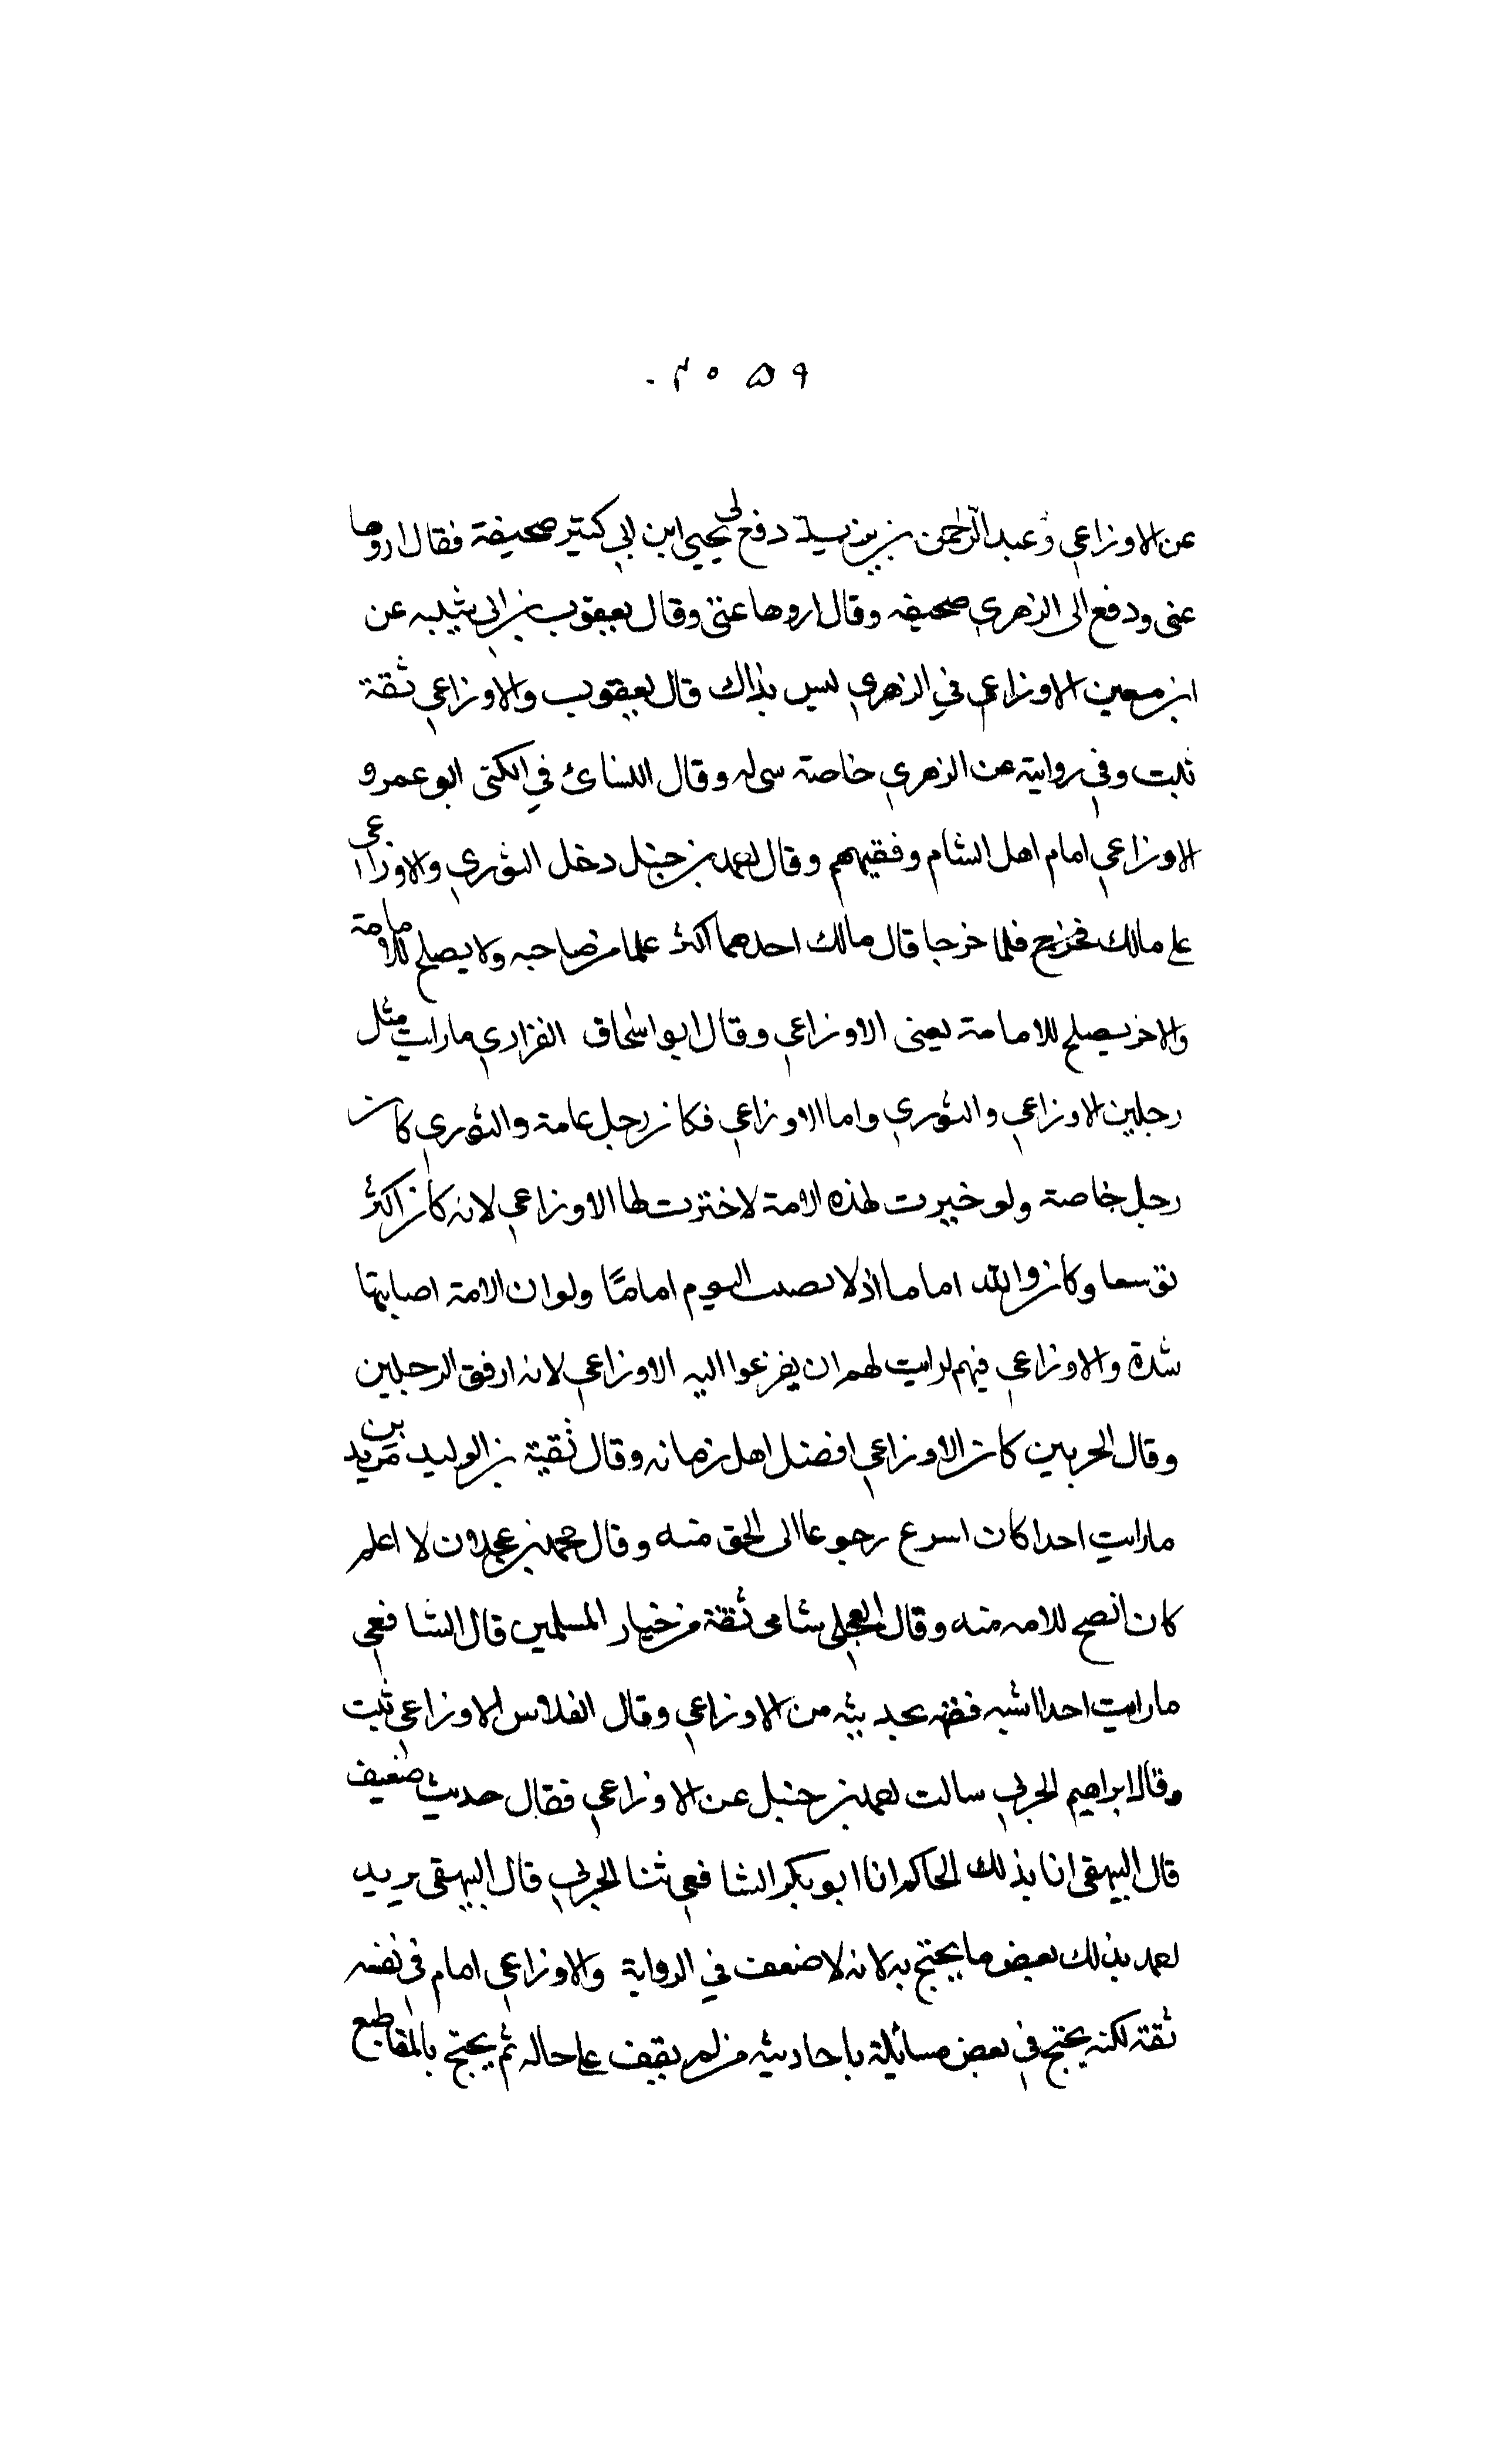 ٢٠٥٩
عن الاوزاعي وعبد الرحمن بن يزيد دفع الى يحيى ابن ابي كثير صحيفة فقال اروها
عنى ودفع الى الزهري صحيفه وقال اروها عنى وقال يعقوب بن ابي شيبه عن
ابن معين الاوزاعي في الزهري ليس بذاك قال يعقوب والاوزاعي ثقة
ثبت وفي روايته عن الزهري خاصة وقال النسائ في الكنى ابو عمرو
الاوزاعي امام اهل الشام وفقيههم وقال احمد بن حنبل دخل الثوري والاوزاعي
على مالك فلما خرجا قال مالك احدهما اكثر علما من صاحبه ولا يصلح للامامة
والاخر يصلح للامامة يعنى الاوزاعي وقال ابو اسحاق الفزاري ما رايت مثل
رجلين الاوزاعي والثوري واما الاوزاعي فكان رجل عامة والثوري كان
رجل خاصة ولو خيرت لهذه الامة لاخترت لها الاوزاعي لانه كان اكثر
توسعا وكان والله اماما اذ لا نصيب اليوم اماما ولو ان الامة اصابتها
شدة والاوزاعي فيهم لرايت لهم ان يفزعوا اليه الاوزاعي لانه ارفق الرجلين
وقال الخريبي كان الاوزاعي افضل اهل زمانه وقال بقية بن الوليد بن مزيد
ما رايت احدا كان اسرع رجوعا الى الحق منه وقال محمد بن عجلان لا اعلم
كان انصح للامه منه وقال العجلي شامى ثقة من خيار المسلمين قال الشافعي
ما رايت احدا اشبه فقهه بحديثه من الاوزاعي وقال الفلاس الاوزاعي ثبت
وقال ابراهيم الحربي سالت احمد بن حنبل عن الاوزاعي فقال حديث ضعيف
قال البيهقى انا بذلك الحاكم انا ابو بكر الشافعي ثنا الحربي قال البيهقى يريد
احمد بذلك بعض ما يحتج به لا انه لا ضعف في الرواية والاوزاعي امام في نفسه
ثقة لكنه يحتج في بعض مسائلة باحاديث من لم يقف على حاله ثم يحتج بالمقاطيع